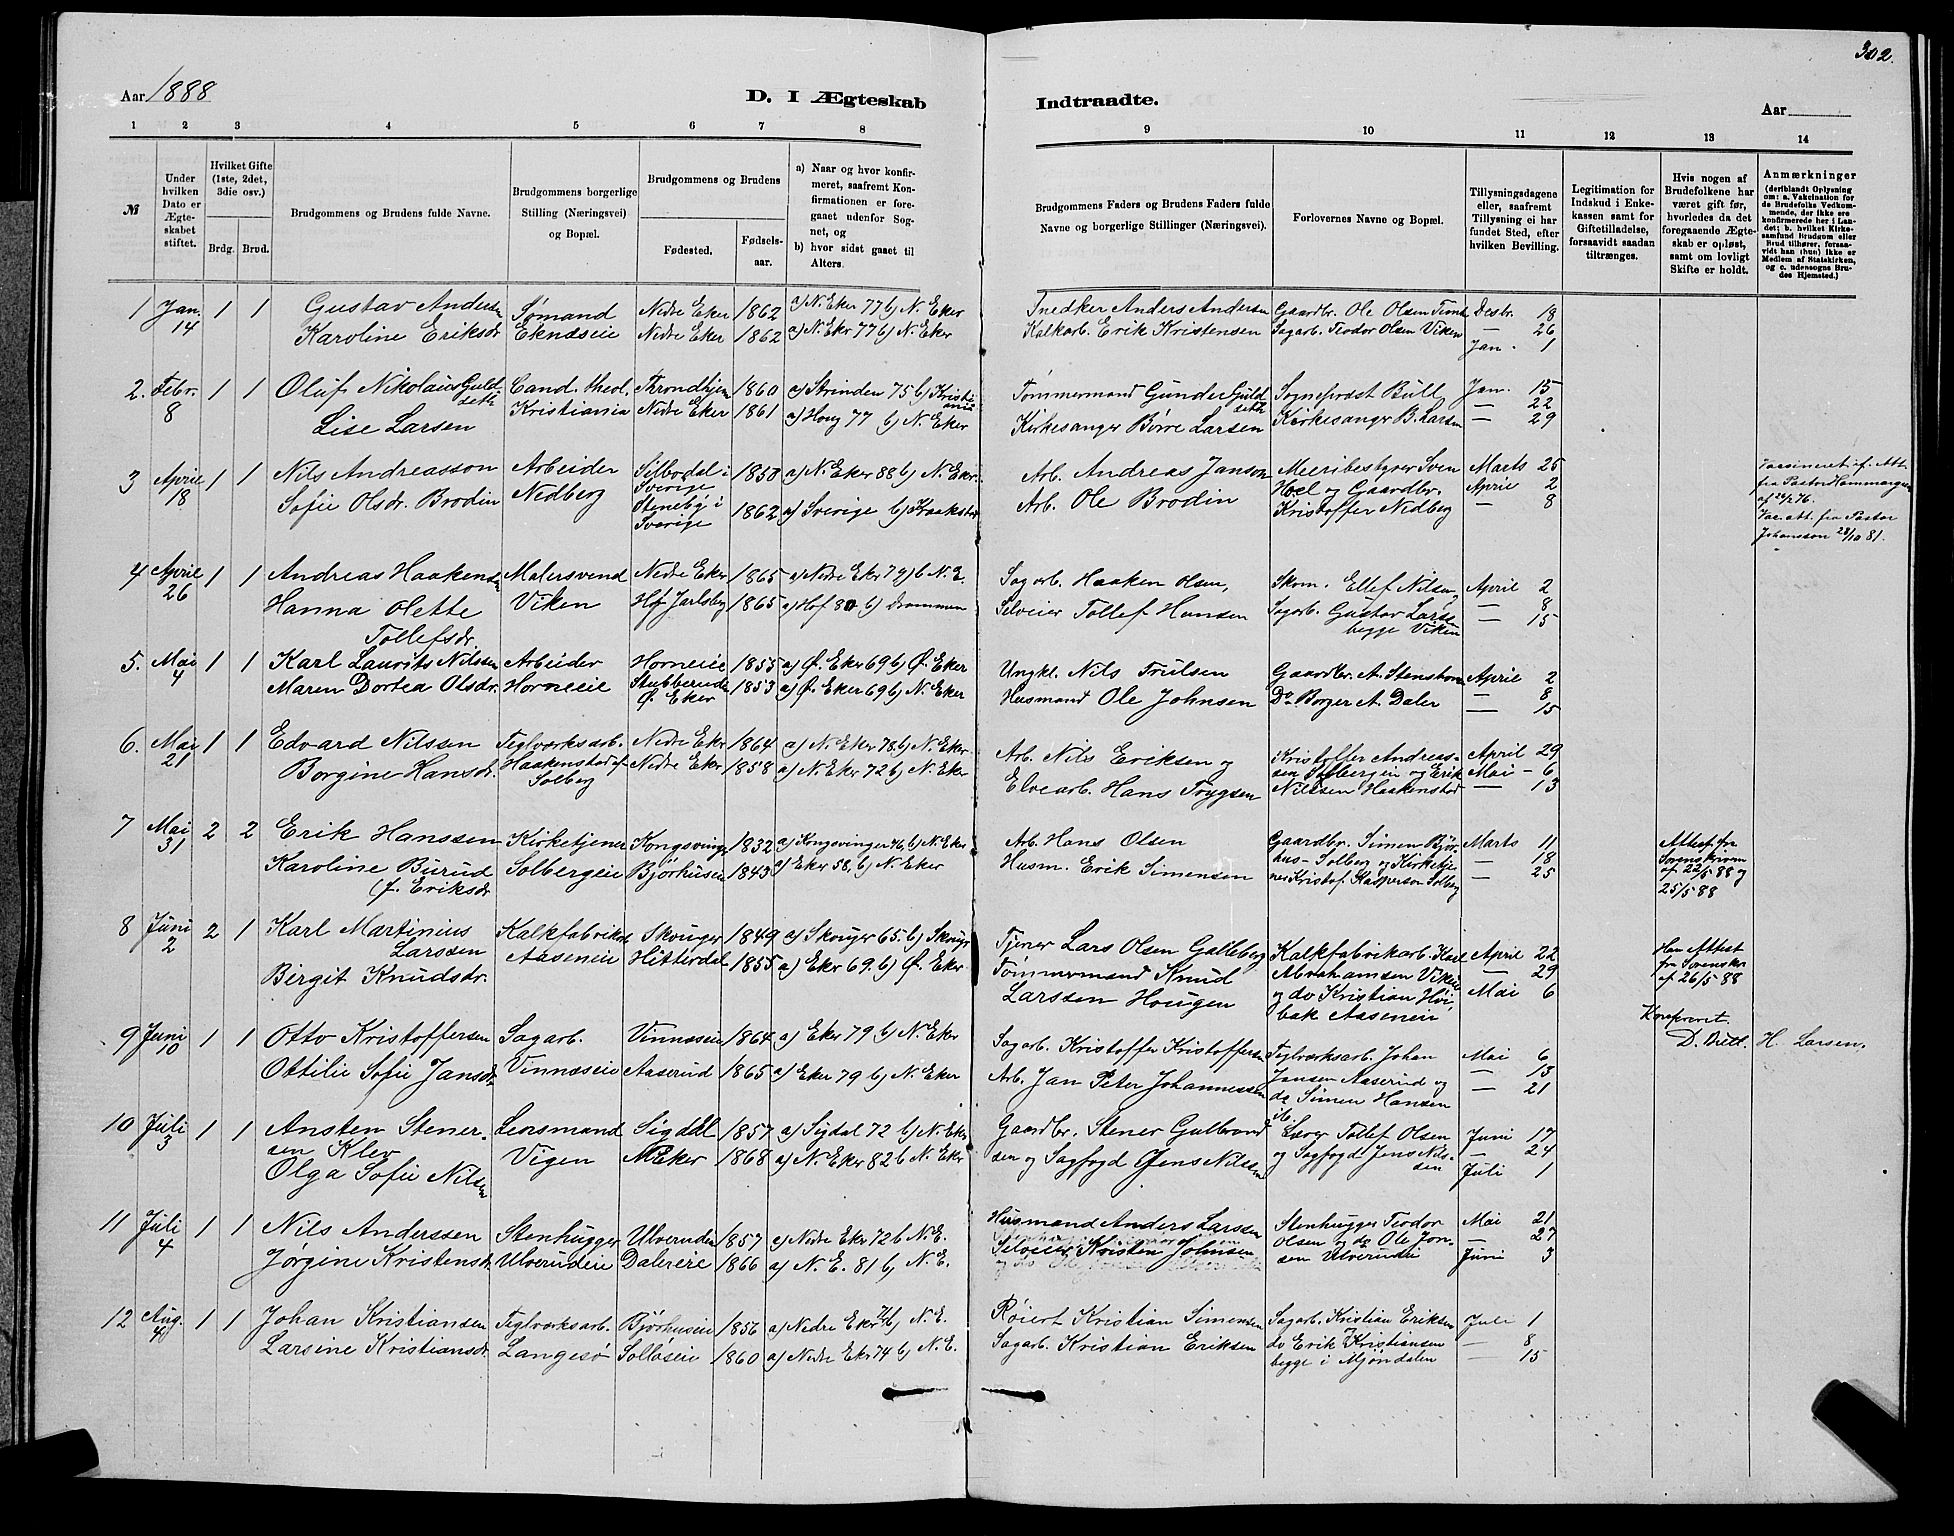 302.
Aar 1888
D. I Ægteskab
Indtraadte.
Aar
1 2 3 4 5 6 7 8 9 10 11 12 13 14
№
Under hvilken Dato er Ægteskabet stiftet.
Hvilket Gifte (1ste, 2det, 3die osv.)
Brdg. Brud.
Brudgommens og Brudens fulde Navne.
Brudgommens borgerlige Stilling (Næringsvei) og Bopæl.
Brudgommens og Brudens
Fødested.
Fødselsaar.
a) Naar og hvor konfirmeret, saafremt Konfirmationen er foregaaet udenfor Sognet, og
b) hvor sidst gaaet til Alters.
Brudgommens Faders og Brudens Faders fulde Navne og borgerlige Stillinger (Næringsvei).
Forlovernes Navne og Bopæl.
Tillysningsdagene eller, saafremt Tillysning ei har fundet Sted, efter hvilken Bevilling.
Legitimation for Indskud i Enkekassen samt for Giftetilladelse, forsaavidt saadan tiltrænges.
Hvis nogen af Brudefolkene har været gift før, hvorledes da det foregaaende Ægteskab er opløst, samt om lovligt Skifte er holdt.
Anmærkninger
(deriblandt Oplysning om: a. Vakcination for de Brudefolks Vedkommende, der ikke ere konfirmerede her i Landet; b. hvilket Kirkesamfund Brudgom eller Brud tilhører, forsaavidt han (hun) ikke er Medlem af Statskirken, og c. udensogns Brudes Hjemsted.)
1 Jan. 14 1 1 Gustav Andersen Sømand Nedre Eker 1862 a) N. Eker 77 b) N. Eker Snedker Anders Andersen Gaardbr. Ole Olsen Desbr. 18
Karoline Eriksdr Eknæseie Nedre Eker 1862 a) N. Eker 77 b) N. Eker Kalkarb. Erik Kristensen Sagarb. Teodor Olsen Viken — 26
Jan. 1
2. Febr. 8 1 1 Oluf Nikolaus Guldseth Cand. theol. Throndhjem 1860 a) Strinden 75 b) Kristiania Tømmermand Gunder Guldseth Sogneprest Bull Jan. 15
Lise Larsen Kristiania Nedre Eker 1861 a) Houg 77 b) N. Eker Kirkesanger Børre Larsen Kirkesanger B. Larsen — 22
— 29
3 April 18 1 1 Nils Andreasson Arbeider Silbodal i Sverige 1858 a) N. Eker 88 b) N. Eker. Arb. Andreas Janson Meieribestyrer Sven Marts 25
Sofie Olsdr. Brodin Nedberg Stenebÿ i Sverige 1862 a) Sverige b) Arb. Ole Brodin Hoel og Gaardbr. April 2
Kristoffer Nedberg — 8
Vaccineret if. Att.
fra Pastor Hammargren
Vac. att. fra Pastor
Johansson 28/10 81.
4 April 26 1 1 Andreas Haakensen Malersvend Nedre Eker 1865 a) Nedre Eker 79 b N. E. Sagarb. Haaken Olsen, Skom. Ellef Nilsen, April 2
Hanna Olette Tollefsdr. Viken Hof Jarlsberg 1865 a) Hof 80 b) Drammen Selveier Tollef Hansen Sagarb. Gustav Larsen — 8
begge Viken — 15
5. Mai 4 1 1 Karl Laurits Nilssen Arbeider Horneeie 1853 a) Ø. Eker 69 b) Ø. Eker Ungkl. Nils Trulsen Gaardbr. A. Stenshorne April 2
Maren Dortea Olsdr. Horneeie Stubberud Ø. Eker 1853 a) Ø. Eker 69 b) N. Eker Husmand Ole Johnsen Do Borger A. Daler — 8
— 15
6. Mai 21 1 1 Edvard Nilssen Teglværksarb. Nedre Eker 1864 a) N. Eker 78 b) N. Eker Arb. Nils Eriksen og Kristoffer Andreas- April 29
Borgine Hansdr. Haakenstad af Solberg Nedre Eker 1858 a) N. Eker 72 b) N. Eker Elvearb. Hans Trygsen sen Solbergeie og Erik Mai — 6
Nilssen Haakenstad — 13
7 Mai 31 2 2 Erik Hanssen Kirketjener Kongsvinger 1832 a) Kongsvinger 46, b) N. Eker Arb. Hans Olsen Gaardbr. Simen Bjør- Marts 11
Karoline Burud (f. Eriksdr. Solbergeie Bjørhuseie 1843 a) Eker 58, b) N. Eker Husm. Erik Simensen hus- Solberg og Kirketje- — 18
ner Kristof. Kaspersen Solberg — 25
Attest fra
Sorenskriver
af 22/5 88 og
25/5 88
8 Juni 2 2 1 Karl Martinius Larssen Kalkfabrikarb. Skouger 1849 a) Skouger 65. b) Skouger Tjener Lars Olsen Galleberg Kalkfabrikarb. Karl April 22
Birgit Knudsdr. Aaseneie Hitterdal 1855 a) Eker 69. b) Ø. Eker. Tømmermand Knud Abrahamsen Viken — 29
Larssen Hougen og do Kristian Høi- Mai 6
bak Aaseneie
Han Attest
fra Sorenskr.
af 26/5 88
9 Juni 10 1 1 Otto Kristoffersen Sagarb. Vinnæseie 1864 a) Eker 79 b) N. Eker Sagarb. Kristoffer Kristoffersen Teglværksarb. Johan Mai 6
Ottilie Sofie Jansdr Vinnæseie Aaserud 1865 a) Eker 79 b) N. Eker Arb. Jan Peter Johannessen Jansen Aaserud og — 13
do Simen Hansen — 21
ib.
Konfereret.
D. Butt. H. Larsen.
10 Juli 3 1 1 Ansten Stener- Lensmand Sigdal 1857 a) Sigdal 72 b) N. Eker Gaardbr. Stener Gulbrand Tollef Olsen Juni 17
sen Klev Vigen N. Eker 1868 a) N. Eker 82 b N. Eker sen og Sagfogd Jens Nilssen og Sagfogd Jens Nilssen — 24
Olga Sofie Nilsen Juli 1
11 Juli 4 1 1 Nils Anderssen Stenhugger Ulveruden 1857 a) Nedre Eker 72 b N. E. Husmand Anders Larssen Stenhugger Teodor Mai 21
Jørgine Kristensdr. Ulverudeie Dalereie 1866 a) N. E. 81 b) N. E. Selveier Kristen Johnsen Olsen og do Ole Jon- — 27
sen Ulverudeie Juni 3
12 Aug. 4 1 1 Johan Kristiansen Teglværksarb. Bjørhuseie 1856 a) Nedre Eker 71 b) N. E. Røiert Kristian Simensen Sagarb. Kristian Eriksen Juli 1
Larsine Kristiansdr. Langesø Solløseie 1860 a) Nedre Eker 74 b) N. E. Sagarb. Kristian Eriksen do Erik Kristiansen — 8
begge i Mjøndalen — 15